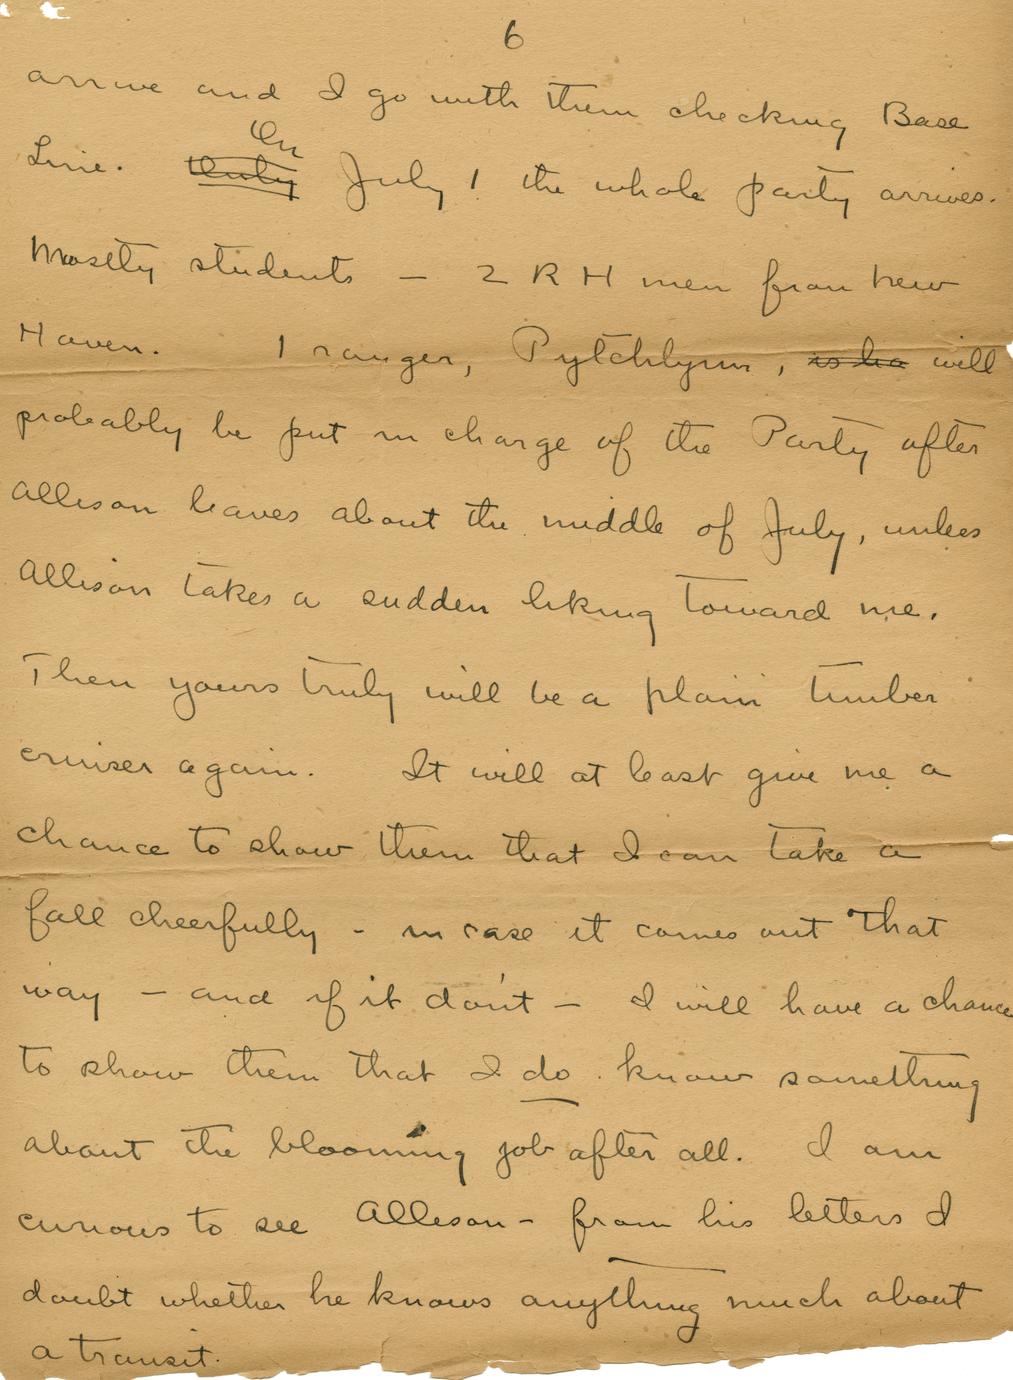 6
arrive and I go with them checking Base
On
Line. July 1 the whole party arrives.
Mostly students — 2 R H men from New
Haven. 1 ranger, Pytchlynn, is ha will
probably be put in charge of the Party after
Allison leaves about the middle of July, unless
Allison takes a sudden liking toward me.
Then yours truly will be a plain timber
cruiser again. It will at least give me a
chance to show them that I can take a
fall cheerfully - in case it comes out that
way — and if it don't — I will have a chance
to show them that I do know something
about the blooming job after all. I am
curious to see Allison - from his letters I
doubt whether he knows anything much about
a transit.